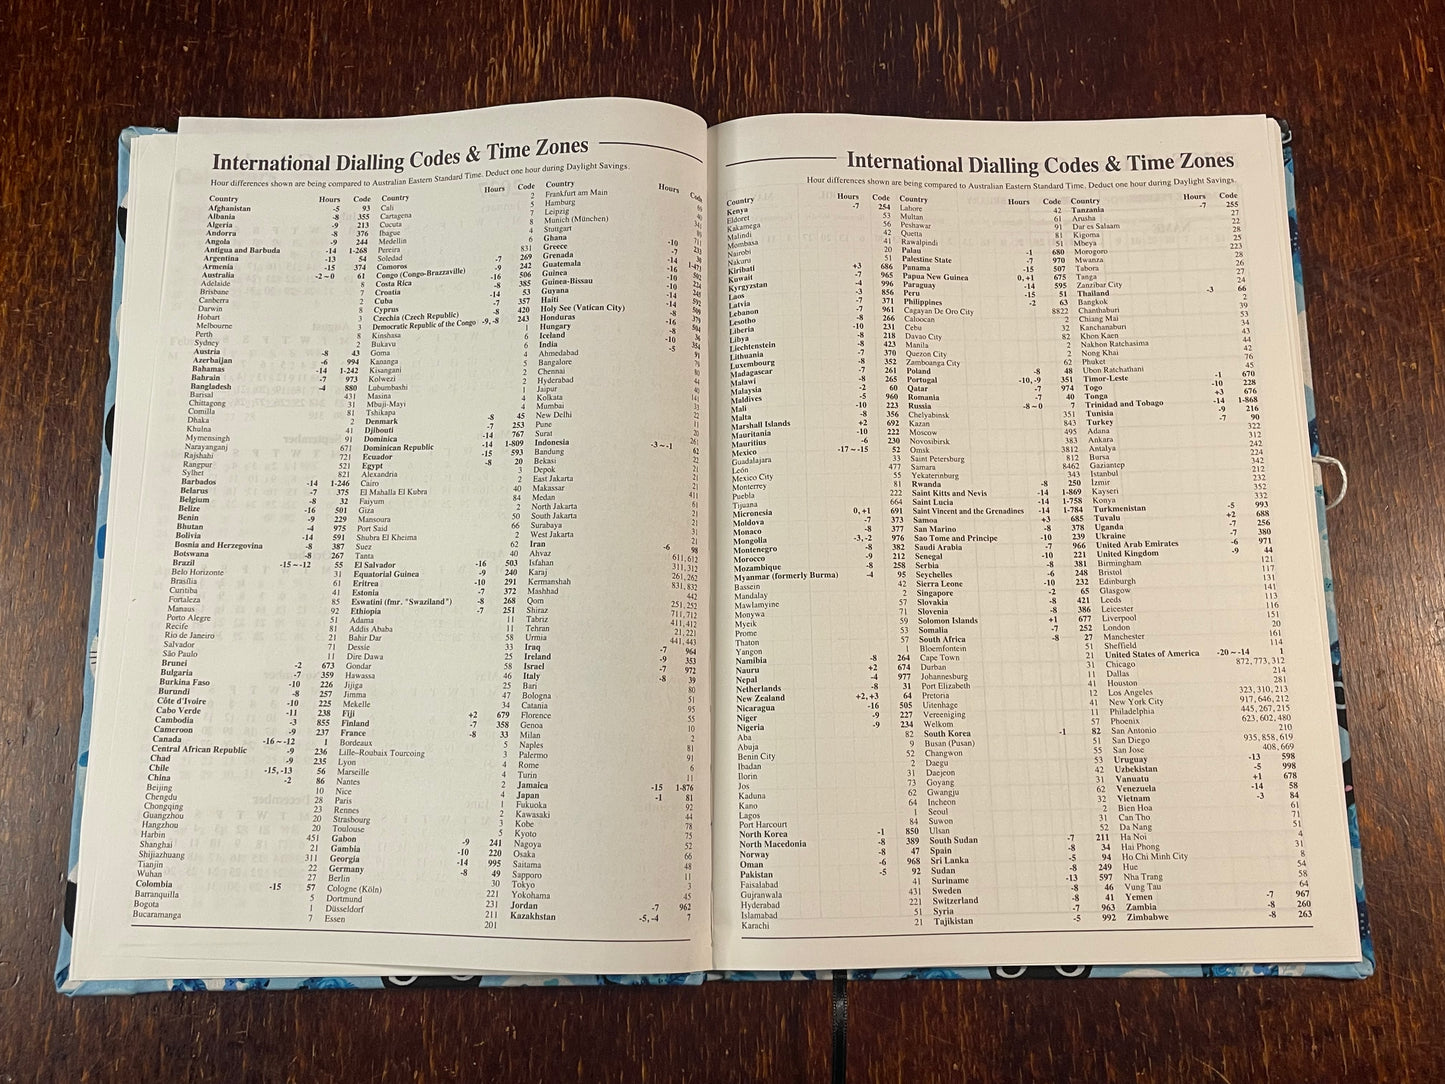 International Dialling Codes & Time Zones
Hour differences shown are being compared to Australian Eastern Standard Time. Deduct one hour during Daylight Savings.
Country Hours Code
Afghanistan -5 93
Albania -8 355
Algeria -9 213
Andorra -8 376
Angola -9 244
Antigua and Barbuda -14 1-268
Argentina -13 54
Armenia -15 374
Australia -2~0 61
Adelaide 8
Brisbane 7
Canberra 2
Darwin 8
Hobart 3
Melbourne 3
Perth 8
Sydney 2
Austria -8 43
Azerbaijan -6 994
Bahamas -14 1-242
Bahrain -7 973
Bangladesh -4 880
Barisal 431
Chittagong 31
Comilla 81
Dhaka 2
Khulna 41
Mymensingh 91
Narayanganj 671
Rajshahi 721
Rangpur 521
Sylhet 821
Barbados -14 1-246
Belarus -7 375
Belgium -8 32
Belize -16 501
Benin -9 229
Bhutan -4 975
Bolivia -14 591
Bosnia and Herzegovina -8 387
Botswana -8 267
Brazil -15~-12 55
Belo Horizonte 31
Brasília 61
Curitiba 41
Fortaleza 85
Manaus 92
Porto Alegre 51
Recife 81
Rio de Janeiro 21
Salvador 71
São Paulo 11
Brunei -2 673
Bulgaria -7 359
Burkina Faso -10 226
Burundi -8 257
Côte d'Ivoire -10 225
Cabo Verde -11 238
Cambodia -3 855
Cameroon -9 237
Canada -16~-12 1
Central African Republic -9 236
Chad -9 235
Chile -15,-13 56
China -2 86
Beijing 10
Chengdu 28
Chongqing 23
Guangzhou 20
Hangzhou 20
Harbin 451
Shanghai 21
Shijiazhuang 311
Tianjin 22
Wuhan 27
Colombia -15 57
Barranquilla 5
Bogota 1
Bucaramanga 7
Country Hours Code
Cali 2
Cartagena 5
Cucuta 7
Ibague 8
Medellin 4
Pereira 6
Soledad 831
Comoros -7 269
Congo (Congo-Brazzaville) -9 242
Costa Rica -16 506
Croatia -8 385
Cuba -14 53
Cyprus -7 357
Czechia (Czech Republic) -8 420
Democratic Republic of the Congo -9,-8 243
Kinshasa 1
Bukavu 6
Goma 6
Kananga 4
Kisangani 5
Kolwezi 2
Lubumbashi 2
Masina 1
Mbuji-Mayi 4
Tshikapa 4
Denmark -8 45
Djibouti -7 253
Dominica -14 767
Dominican Republic -14 1-809
Ecuador -15 593
Egypt -8 20
Alexandria 3
Cairo 2
El Mahalla El Kubra 40
Faiyum 84
Giza 2
Mansoura 50
Port Said 66
Shubra El Kheima 2
Suez 62
Tanta 40
El Salvador -16 503
Equatorial Guinea -9 240
Eritrea -10 291
Estonia -7 372
Eswatini (fmr. "Swaziland") -8 268
Ethiopia -7 251
Adama 11
Addis Ababa 11
Bahir Dar 58
Dessie 33
Dire Dawa 25
Gondar 58
Hawassa 46
Jijiga 25
Jimma 47
Mekelle 34
Fiji +2 679
Finland -7 358
France -8 33
Bordeaux 5
Lille–Roubaix Tourcoing 3
Lyon 4
Marseille 4
Nantes 2
Nice 4
Paris 1
Rennes 2
Strasbourg 3
Toulouse 5
Gabon -9 241
Gambia -10 220
Georgia -14 995
Germany -8 49
Berlin 30
Cologne (Köln) 221
Dortmund 231
Düsseldorf 211
Essen 201
Country Hours Code
Frankfurt am Main 69
Hamburg 40
Leipzig 341
Munich (München) 89
Stuttgart 711
Ghana -10 233
Greece -7 30
Grenada -14 1-473
Guatemala -16 502
Guinea -10 224
Guinea-Bissau -10 245
Guyana -14 592
Haiti -14 509
Holy See (Vatican City) -8 379
Honduras -16 504
Hungary -8 36
Iceland -10 354
India -5 91
Ahmedabad 79
Bangalore 80
Chennai 44
Hyderabad 40
Jaipur 141
Kolkata 33
Mumbai 22
New Delhi 11
Pune 20
Surat 261
Indonesia -3~-1 62
Bandung 22
Bekasi 21
Depok 21
East Jakarta 21
Makassar 411
Medan 61
North Jakarta 21
South Jakarta 21
Surabaya 31
West Jakarta 21
Iran -6 98
Ahvaz 611,612
Isfahan 311,312
Karaj 261,262
Kermanshah 831,832
Mashhad 442
Qom 251,252
Shiraz 711,712
Tabriz 411,412
Tehran 21,221
Urmia 441,443
Iraq -7 964
Ireland -9 353
Israel -7 972
Italy -8 39
Bari 80
Bologna 51
Catania 95
Florence 55
Genoa 10
Milan 2
Naples 81
Palermo 91
Rome 6
Turin 11
Jamaica -15 1-876
Japan -1 81
Fukuoka 92
Kawasaki 44
Kobe 78
Kyoto 75
Nagoya 52
Osaka 66
Saitama 48
Sapporo 11
Tokyo 3
Yokohama 45
Jordan -7 962
Kazakhstan -5,-4 7
International Dialling Codes & Time Zones
Hour differences shown are being compared to Australian Eastern Standard Time. Deduct one hour during Daylight Savings.
Country Hours Code
Kenya -7 254
Eldoret 53
Kakamega 56
Malindi 42
Mombasa 41
Nairobi 20
Nakuru 51
Kiribati +3 686
Kuwait -7 965
Kyrgyzstan -4 996
Laos -3 856
Latvia -7 371
Lebanon -7 961
Lesotho -8 266
Liberia -10 231
Libya -8 218
Liechtenstein -8 423
Lithuania -7 370
Luxembourg -8 352
Madagascar -7 261
Malawi -8 265
Malaysia -2 60
Maldives -5 960
Mali -10 223
Malta -8 356
Marshall Islands +2 692
Mauritania -10 222
Mauritius -6 230
Mexico -17~-15 52
Guadalajara 33
León 477
Mexico City 55
Monterrey 81
Puebla 222
Tijuana 664
Micronesia 0,+1 691
Moldova -7 373
Monaco -8 377
Mongolia -3,-2 976
Montenegro -8 382
Morocco -9 212
Mozambique -8 258
Myanmar (formerly Burma) -4 95
Bassein 42
Mandalay 2
Mawlamyine 57
Monywa 71
Myeik 59
Prome 53
Thaton 57
Yangon 1
Namibia -8 264
Nauru +2 674
Nepal -4 977
Netherlands -8 31
New Zealand +2,+3 64
Nicaragua -16 505
Niger -9 227
Nigeria -9 234
Aba 82
Abuja 9
Benin City 52
Ibadan 2
Ilorin 31
Jos 73
Kaduna 62
Kano 64
Lagos 1
Port Harcourt 84
North Korea -1 850
North Macedonia -8 389
Norway -8 47
Oman -6 968
Pakistan -5 92
Faisalabad 41
Gujranwala 431
Hyderabad 221
Islamabad 51
Karachi 21
Country Hours Code
Lahore 42
Multan 61
Peshawar 91
Quetta 81
Rawalpindi 51
Palau -1 680
Palestine State -7 970
Panama -15 507
Papua New Guinea 0,+1 675
Paraguay -14 595
Peru -15 51
Philippines -2 63
Cagayan De Oro City 8822
Caloocan 2
Cebu 32
Davao City 82
Manila 2
Quezon City 2
Zamboanga City 62
Poland -8 48
Portugal -10,-9 351
Qatar -7 974
Romania -7 40
Russia -8~0 7
Chelyabinsk 351
Kazan 843
Moscow 495
Novosibirsk 383
Omsk 3812
Saint Petersburg 812
Samara 8462
Yekaterinburg 343
Rwanda -8 250
Saint Kitts and Nevis -14 1-869
Saint Lucia -14 1-758
Saint Vincent and the Grenadines -14 1-784
Samoa +3 685
San Marino -8 378
Sao Tome and Principe -10 239
Saudi Arabia -7 966
Senegal -10 221
Serbia -8 381
Seychelles -6 248
Sierra Leone -10 232
Singapore -2 65
Slovakia -8 421
Slovenia -8 386
Solomon Islands +1 677
Somalia -7 252
South Africa -8 27
Bloemfontein 51
Cape Town 21
Durban 31
Johannesburg 11
Port Elizabeth 41
Pretoria 12
Uitenhage 41
Vereeniging 11
Welkom 57
South Korea -1 82
Busan (Pusan) 51
Changwon 55
Daegu 53
Daejeon 42
Goyang 31
Gwangju 62
Incheon 32
Seoul 2
Suwon 31
Ulsan 52
South Sudan -7 211
Spain -8 34
Sri Lanka -5 94
Sudan -8 249
Suriname -13 597
Sweden -8 46
Switzerland -8 41
Syria -7 963
Tajikistan -5 992
Country Hours Code
Tanzania -7 255
Arusha 27
Dar es Salaam 22
Kigoma 28
Mbeya 25
Morogoro 223
Mwanza 28
Tabora 26
Tanga 27
Zanzibar City 24
Thailand -3 66
Bangkok 2
Chanthaburi 39
Chiang Mai 53
Kanchanaburi 34
Khon Kaen 43
Nakhon Ratchasima 44
Nong Khai 42
Phuket 76
Ubon Ratchathani 45
Timor-Leste -1 670
Togo -10 228
Tonga +3 676
Trinidad and Tobago -14 1-868
Tunisia -9 216
Turkey -7 90
Adana 322
Ankara 312
Antalya 242
Bursa 224
Gaziantep 342
Istanbul 212
Izmir 232
Kayseri 352
Konya 332
Turkmenistan -5 993
Tuvalu +2 688
Uganda -7 256
Ukraine -7 380
United Arab Emirates -6 971
United Kingdom -9 44
Birmingham 121
Bristol 117
Edinburgh 131
Glasgow 141
Leeds 113
Leicester 116
Liverpool 151
London 20
Manchester 161
Sheffield 114
United States of America -20~-14 1
Chicago 872,773,312
Dallas 214
Houston 281
Los Angeles 323,310,213
New York City 917,646,212
Philadelphia 445,267,215
Phoenix 623,602,480
San Antonio 210
San Diego 935,858,619
San Jose 408,669
Uruguay -13 598
Uzbekistan -5 998
Vanuatu +1 678
Venezuela -14 58
Vietnam -3 84
Bien Hoa 61
Can Tho 71
Da Nang 51
Ha Noi 4
Hai Phong 31
Ho Chi Minh City 8
Hue 54
Nha Trang 58
Vung Tau 64
Yemen -7 967
Zambia -8 260
Zimbabwe -8 263